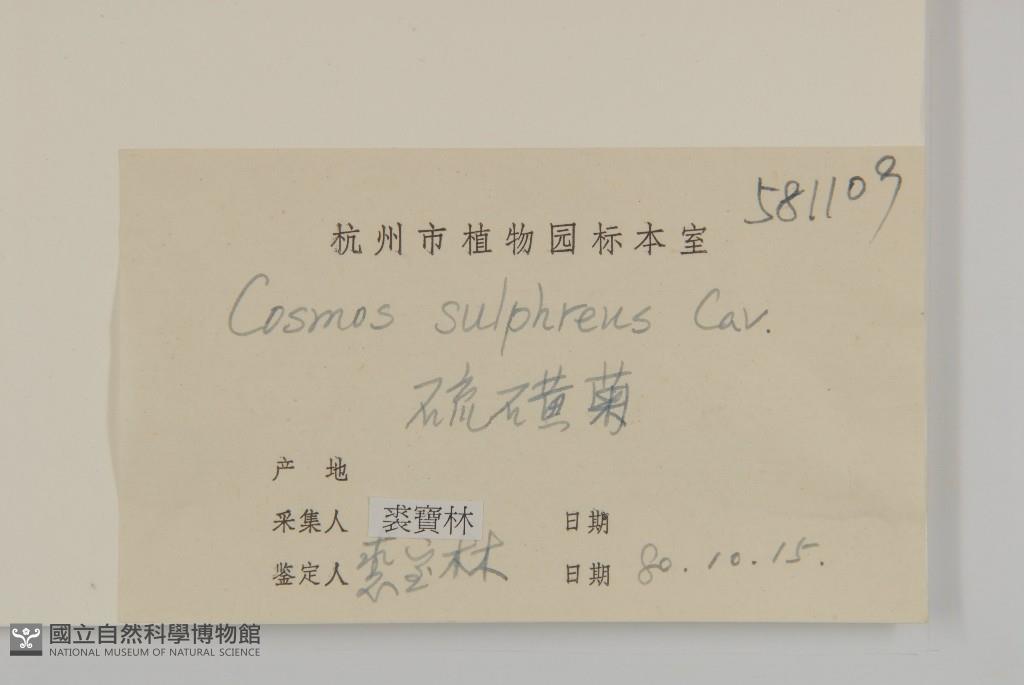 581109
杭州市植物园标本室
Cosmos sulphreus Cav.
硫磺菊
产 地
采集人 裘寶林 日期
鉴定人 裘宝林 日期 80.10.15.
國立自然科學博物館
NATIONAL MUSEUM OF NATURAL SCIENCE